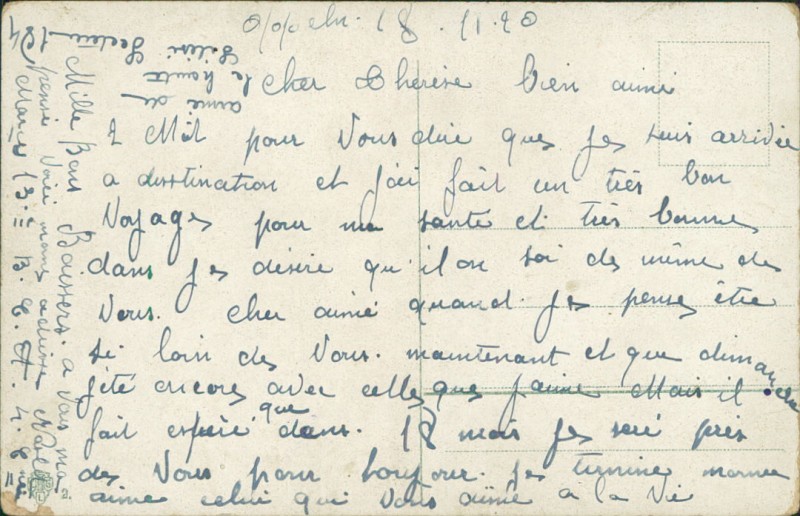 Oppeln. 18. 11. 20
Cher Thérèse bien aimé
2 Môt pour Vous dire ques jes suis arrivée
a desttination et j'ai fait un très bon
Voyages pour ma santé et très bonnes
dans jes désire qu'il on soi des même des
Vous. cher aimé quand jes penses être
si loin des Vous. maintenant et que dimanche
j'été encores avec celles ques j'aime Mais il
fait espéré que dans. 18 mois jes seré près
des Vous pour toujour. jes termine
aime celui qui Vous aime a la Vie
Mille Bons Baissers. a Vous ma
pensé Voici mons adresse
Marie 13= B. C. A. 4.
armé de
la haute
Silési Secteur